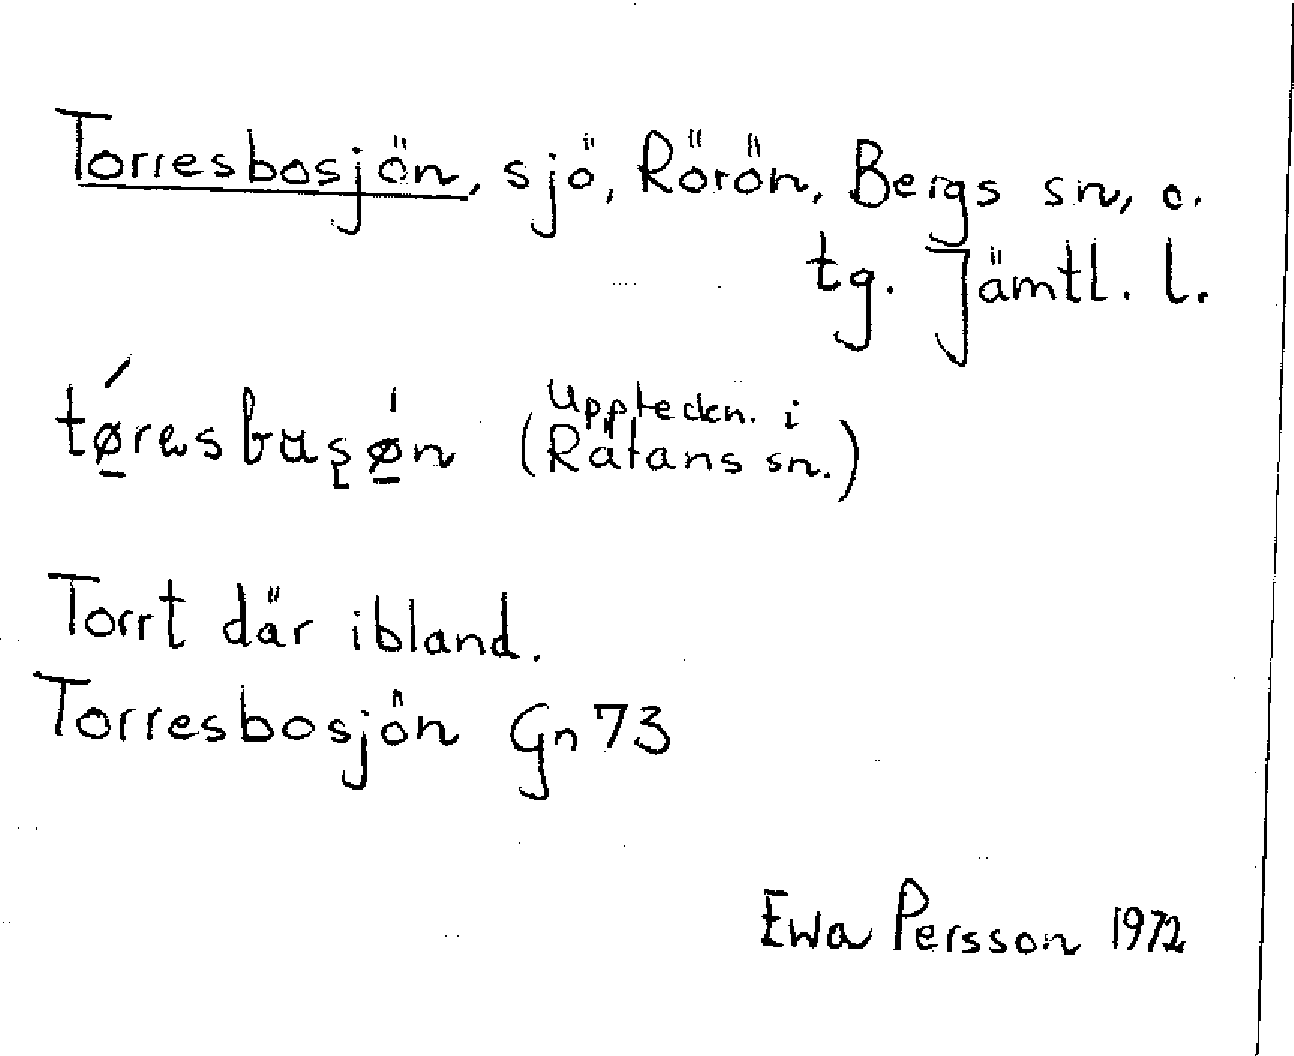 Torresbosjön, sjö, Rörön, Bergs sn, c.
tg. Jämtl. l.
(Uppteckn. i
Rätans sn.)
Torrt där ibland.
Torresbosjön Gn 73
Ewa Persson 1972